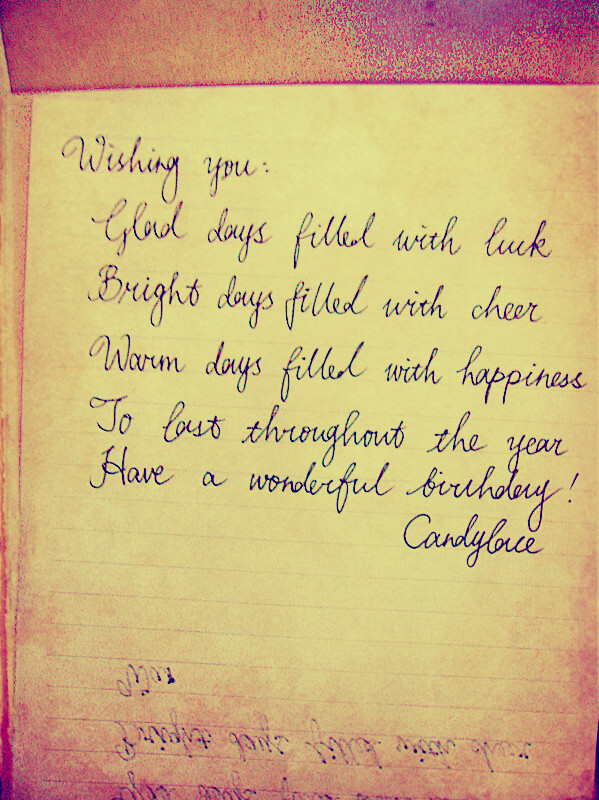 Wishing you:
Glad days filled with luck
Bright days filled with cheer
Warm days filled with happiness
To last throughout the year
Have a wonderful birthday!
Candylace